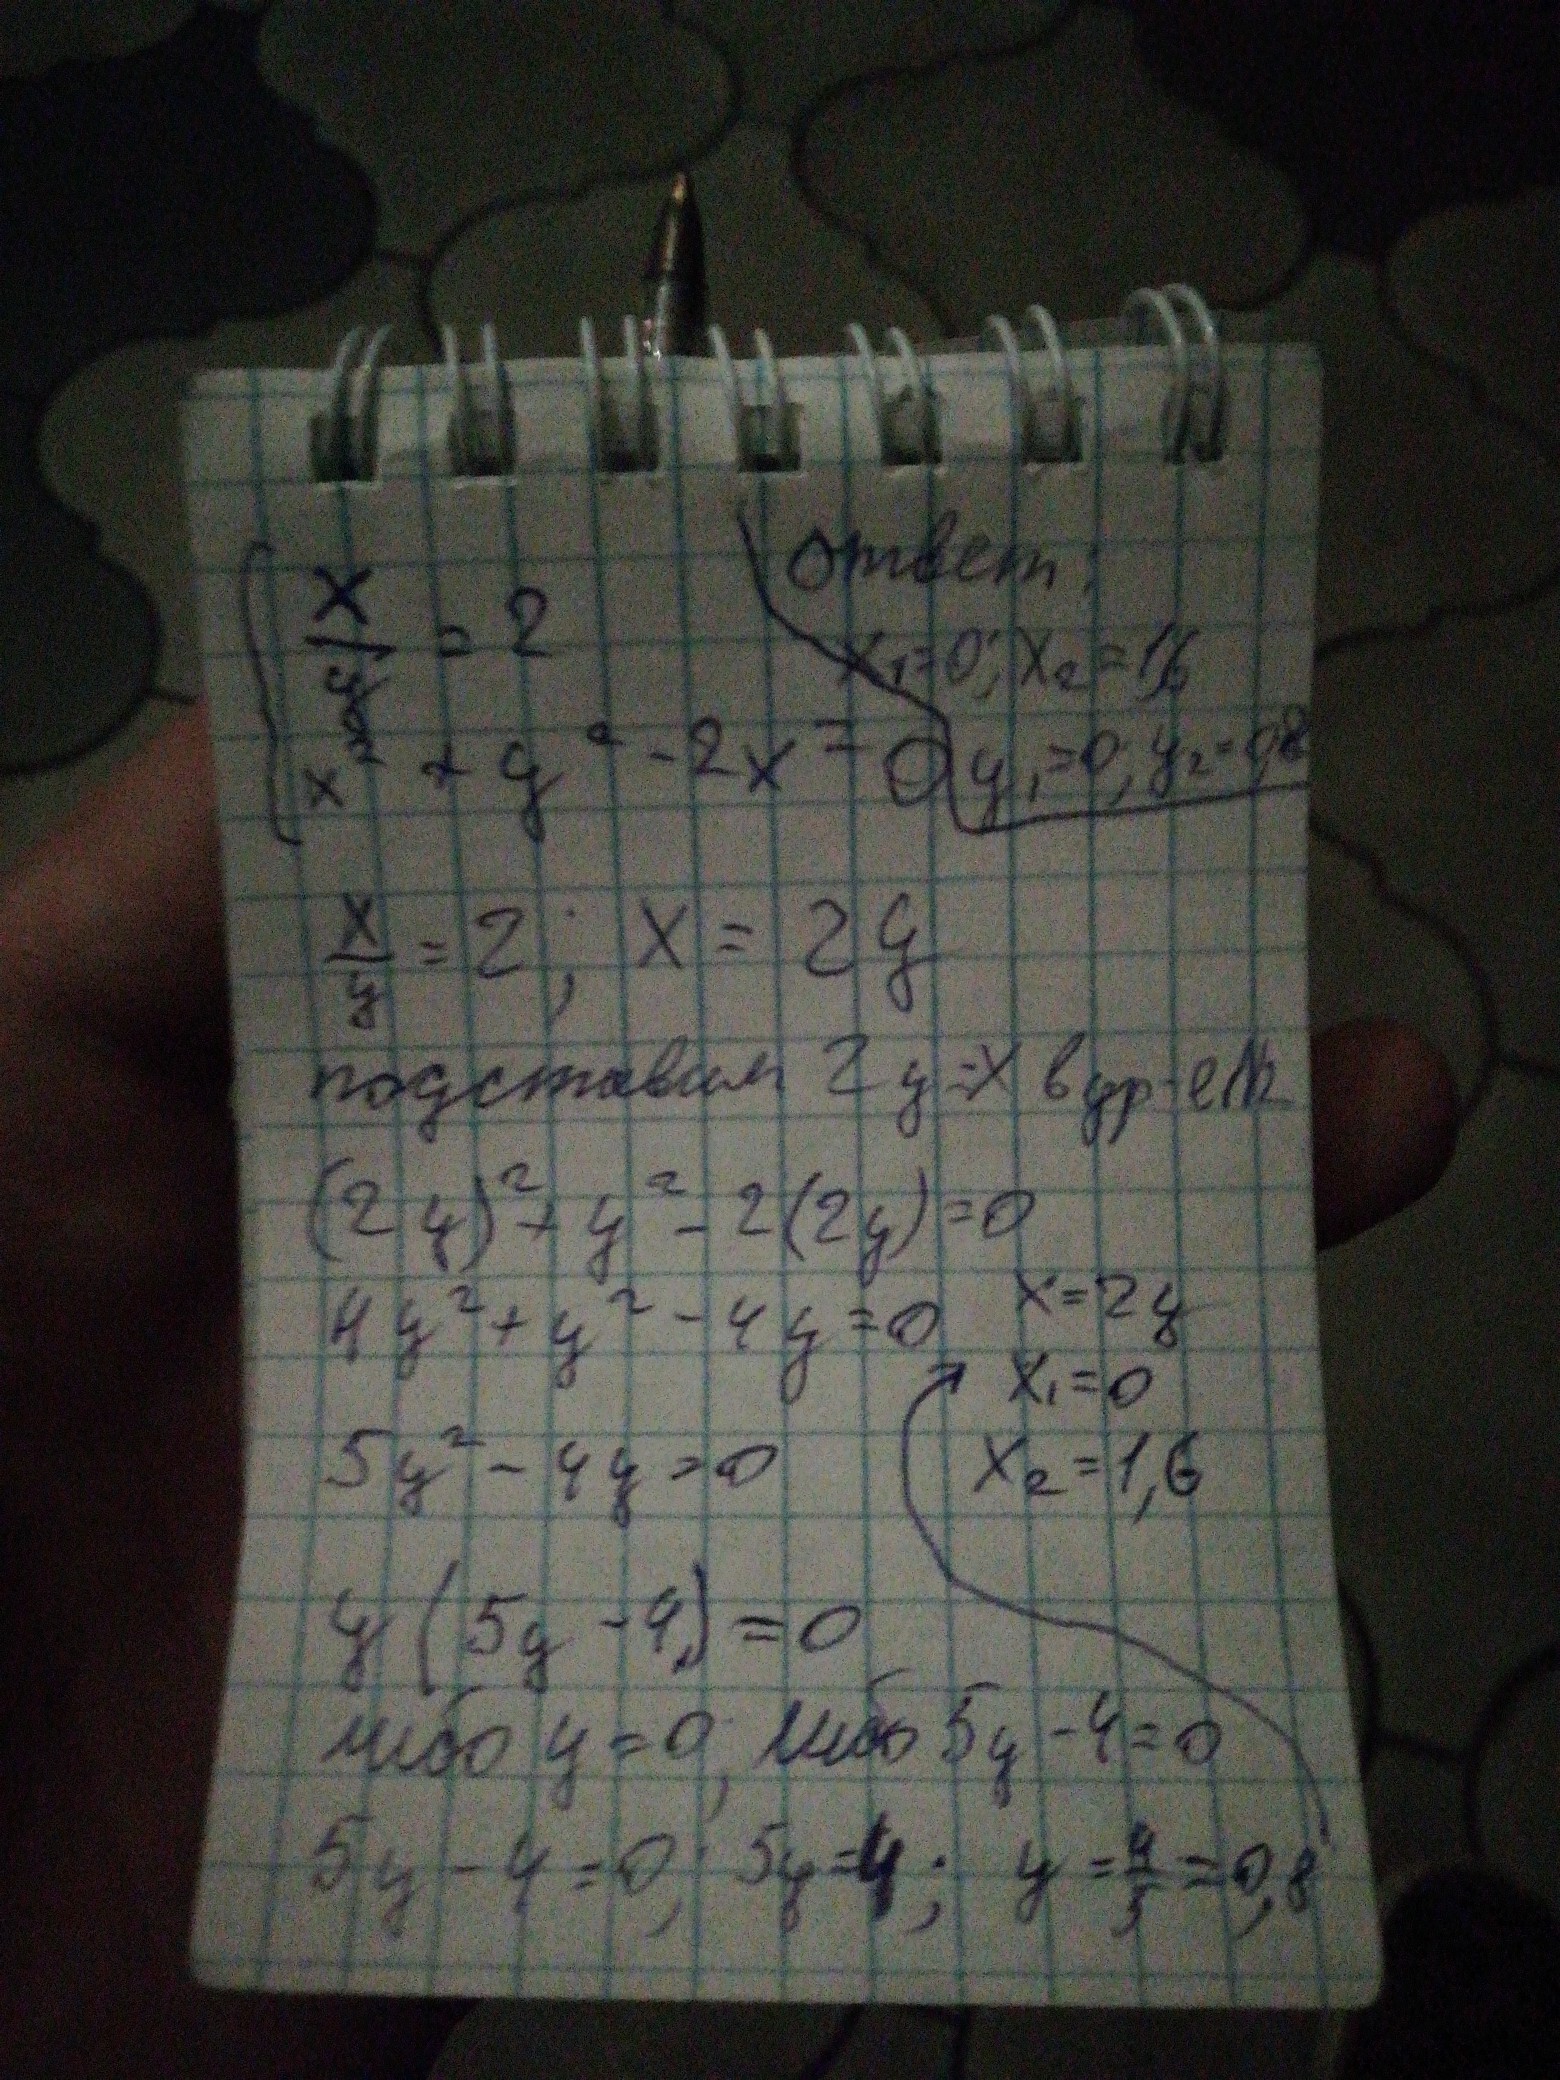 x/y = 2
x² + y² - 2x = 0
Ответ:
x₁=0; x₂=1,6
y₁=0; y₂=0,8
x/y = 2; x = 2y
подставим 2y=x в ур-е
(2y)² + y² - 2(2y) = 0
4y² + y² - 4y = 0
x = 2y
x₁ = 0
x₂ = 1,6
5y² - 4y = 0
y(5y - 4) = 0
либо y = 0; либо 5y - 4 = 0
5y - 4 = 0; 5y = 4; y = 4/5 = 0,8